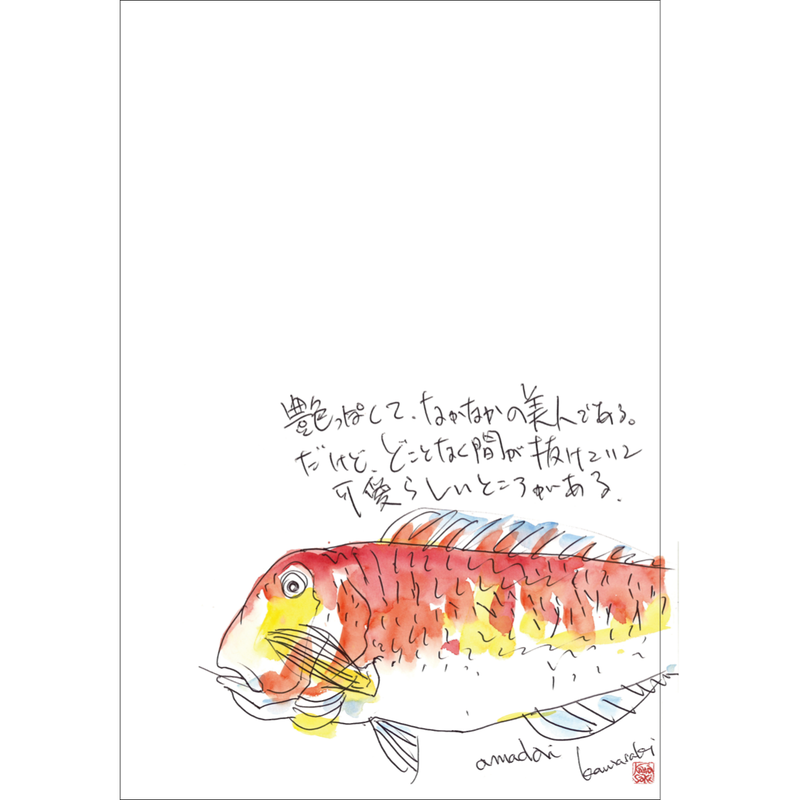 艶っぽくて、なかなかの美人である。
だけど、どことなく間が抜けていて
可愛らしいところがある。
amadai